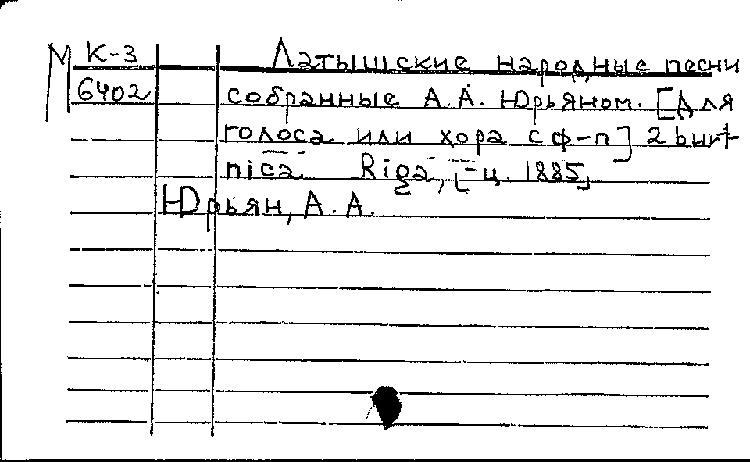 М К-3 Латышские народные песни
6402 собранные А.А. Юрьяном. [Для
голоса или хора с ф-п] 2 burt-
nīca Riga, [-ц. 1885]
Юрьян, А. А.